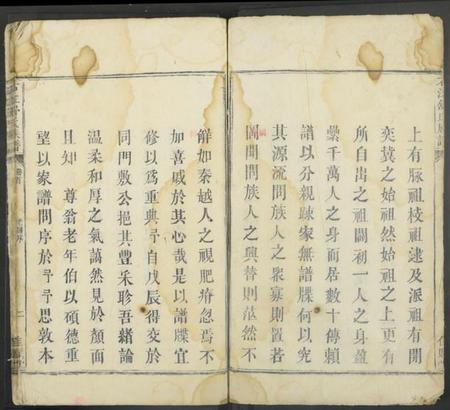 上有脉祖枝祖逮及派祖有開
奕冀之始祖然始祖之上更有
所自出之祖闢初一人之身盈
纍千萬人之身而居數十傳賴
譜以分親疎家無譜牒何以究
其源流問族人之衆寡則置若
罔聞問族人之興替則茫然不
觧如秦越人之視肥瘠忽焉不
加喜戚於其心哉是以譜牒宜
修以爲重典予自戊辰得交於
同門敷公挹其豊采聆吾緒論
温柔和厚之氣藹然見於顏面
且知 尊翁老年伯以碩德重
望以家譜問序於予予思敦本